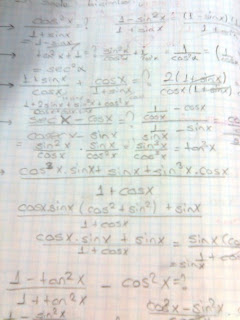 cos²x = ? 1-sin²x (1-sinx)(1
1+sinx 1+sinx
= 1-sinx
tan²x+1 = ? sin²x/cos²x + 1 = 1/cos²x = (1/
= sec²x
1+sinx/cosx + cosx/1+sinx = ? 2(1+sinx)/cosx(1+sinx)
1+2sinx+sin²x+cos²x
secx - cosx = ? 1/cosx - cosx
cosecx - sinx 1/sinx - sinx
= sin²x/cosx · sinx/cos²x = sin³x/cos³x = tan³x
cos³x.sinx + sinx + sin³x.cosx
1+cosx
cosxsinx(cos²+sin²)+sinx
1+cosx
cosx.sinx + sinx = sinx(co
1+cosx 1+co
= sinx
1-tan²x/1+tan²x - cos²x = ?
cos²x-sin²x
1-sin²x